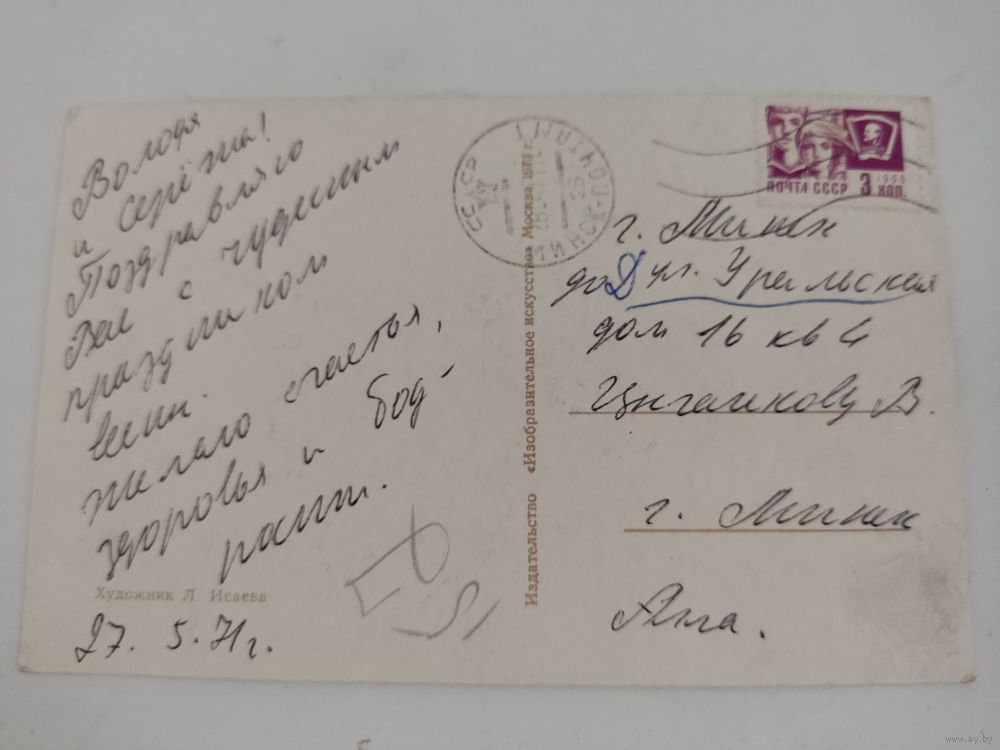 Володя
и Серёжа!
Поздравляю
Вас с чудесным
праздником
весны.
Желаю счастья,
здоровья и бод-
рости.
Художник Л. Исаева
27. 5. 71г.
Издательство «Изобразительное искусство» Москва
СССР
ПОЧТАМТ
ПОЧТА СССР 3 КОП.
1966
г. Минск
ул. Уральская
дом 16 кв 4
Цыганкову В.
г. Минск
Алла.
www.ay.by